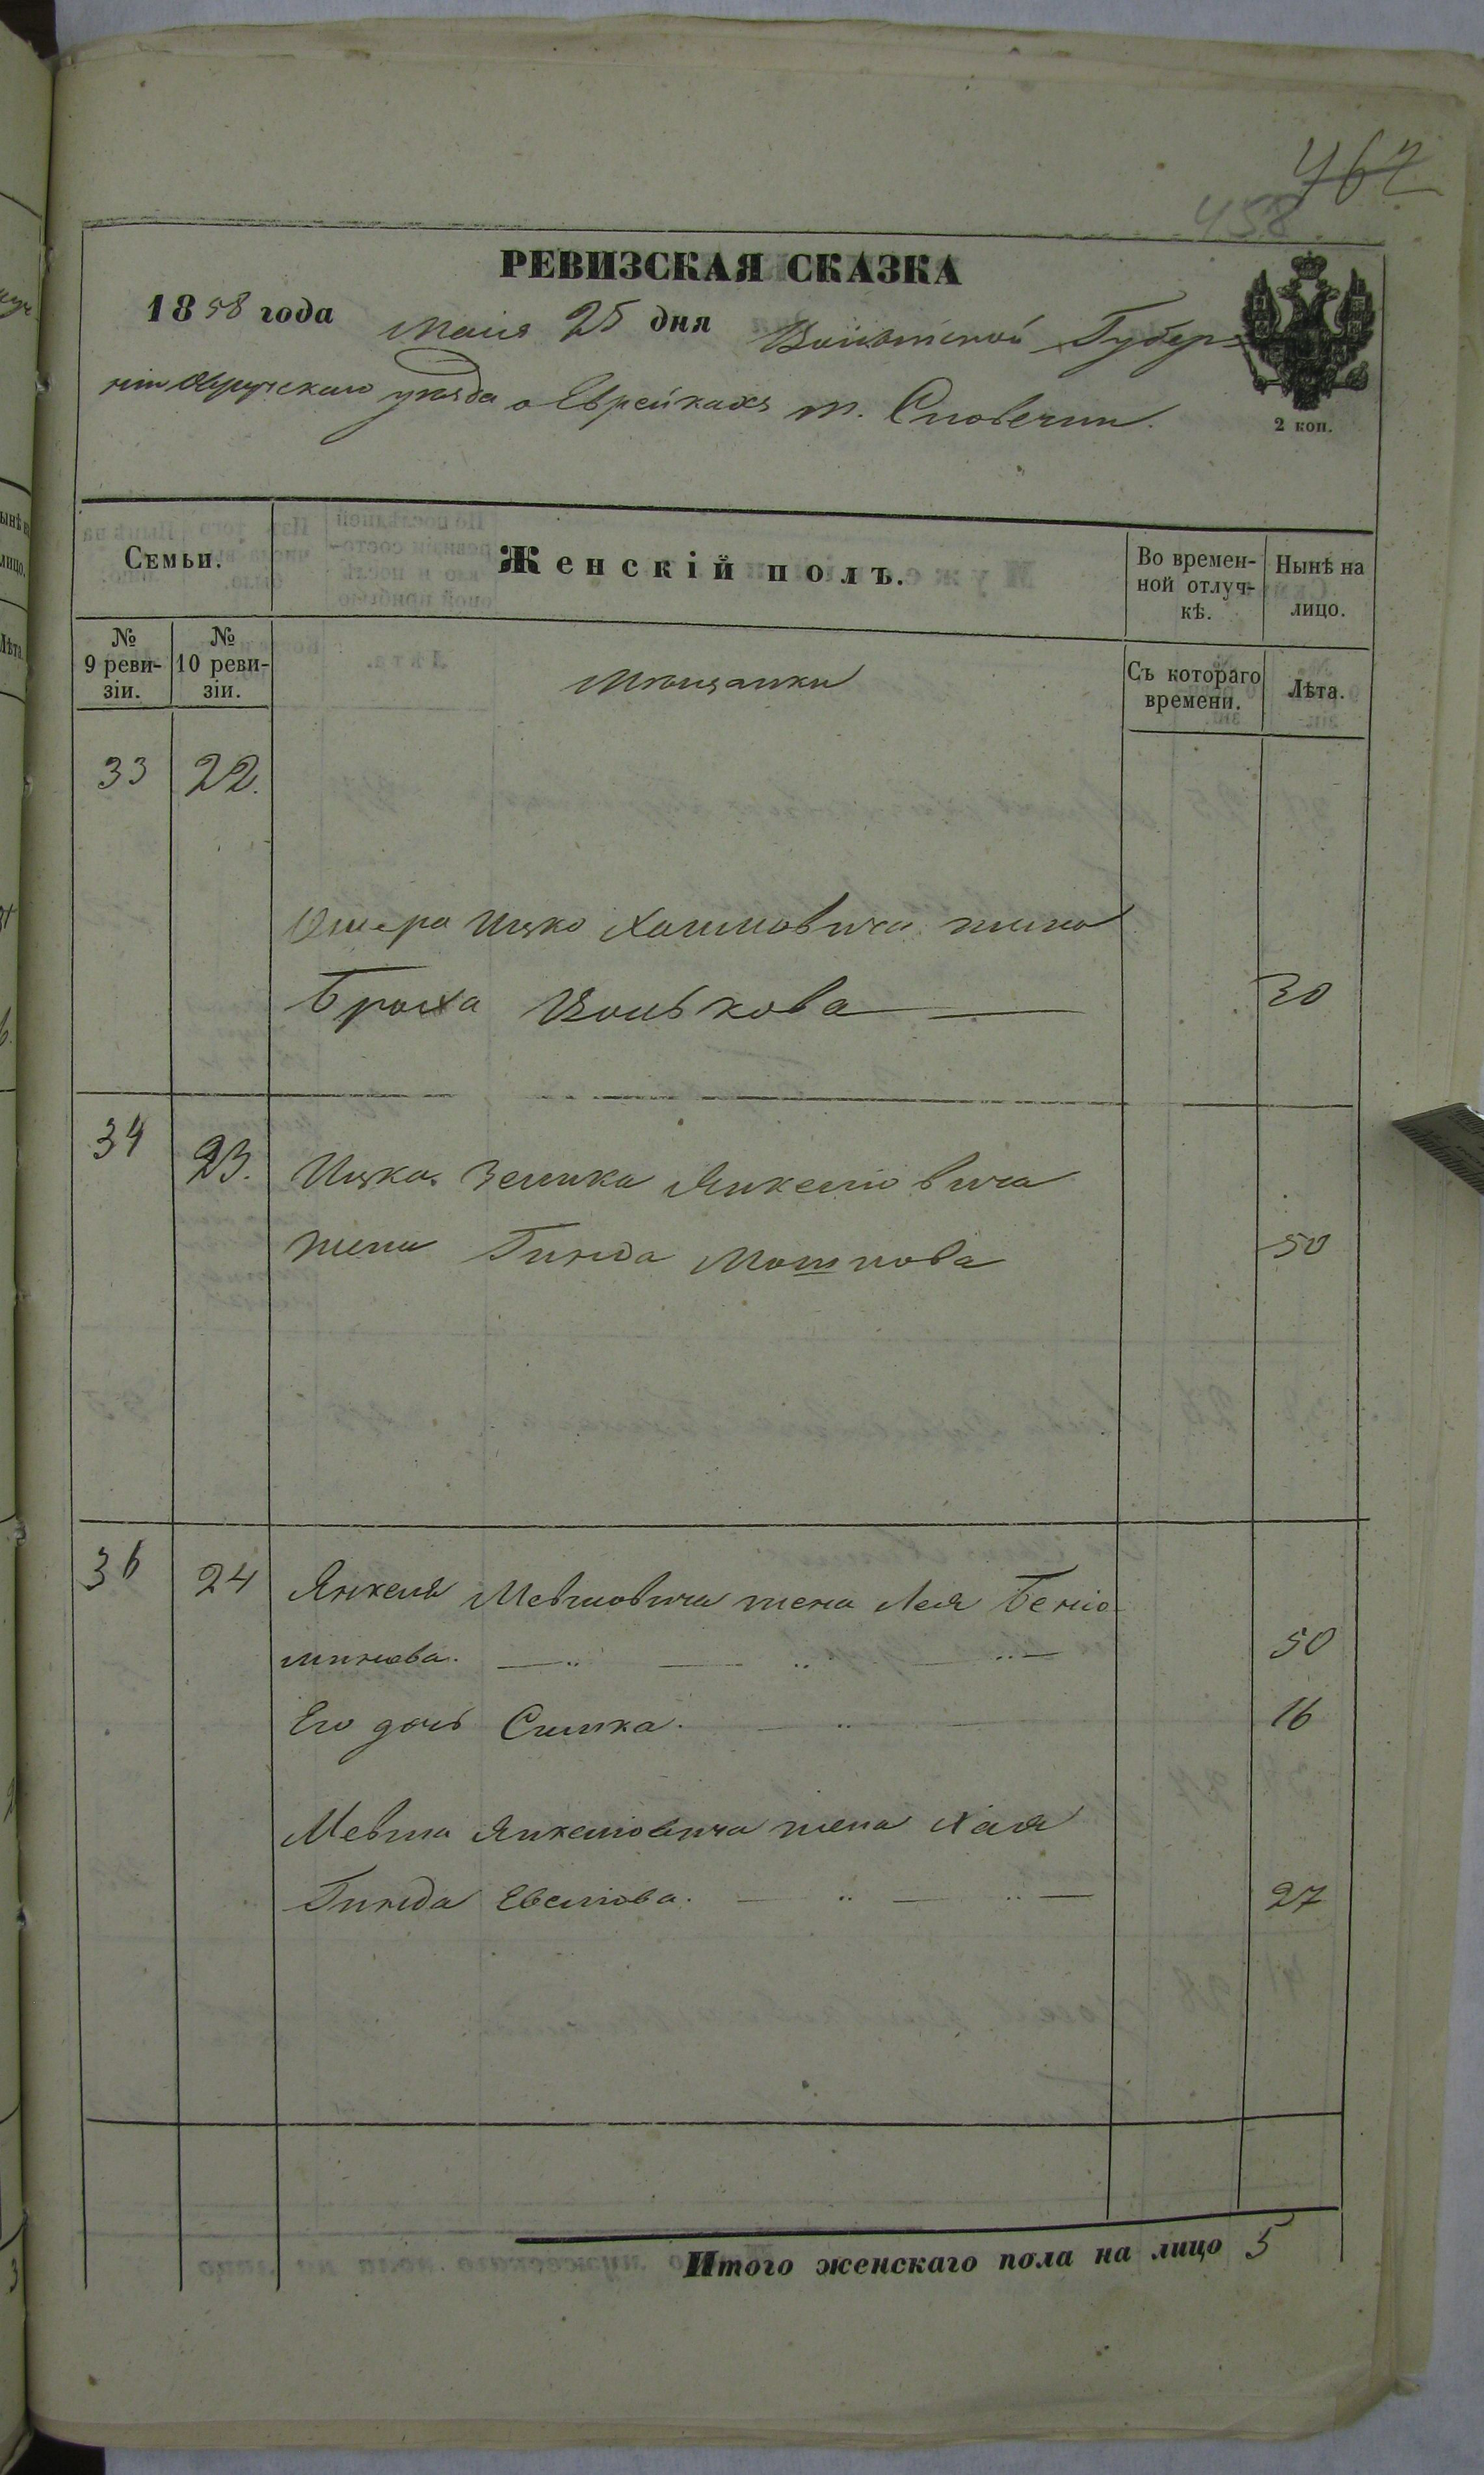 467
458
РЕВИЗСКАЯ СКАЗКА
1858 года Маія 25 дня Волынской Губер-
ніи Овручскаго уѣзда о Еврейкахъ м. Словечин.
2 коп.
Семьи.
Женскій полъ.
Во времен-
ной отлуч-
кѣ.
Нынѣ на
лицо.
№
9 реви-
зіи.
№
10 реви-
зіи.
Мѣщанки
Съ котораго
времени.
Лѣта.
33 22.
Ошера Ицко Хаимовича жена
Бройха Волькова 30
34 23. Ицка Зелика Янкелiовича
жена Гинда Мошкова 50
36 24 Янкеля Мевшовича жена Лея Бенiо-
минова. 50
Его дочь Симка. 16
Мевша Янкелiовича жена Хая
Гинда Евелiова. 27
Итого женскаго пола на лицо 5